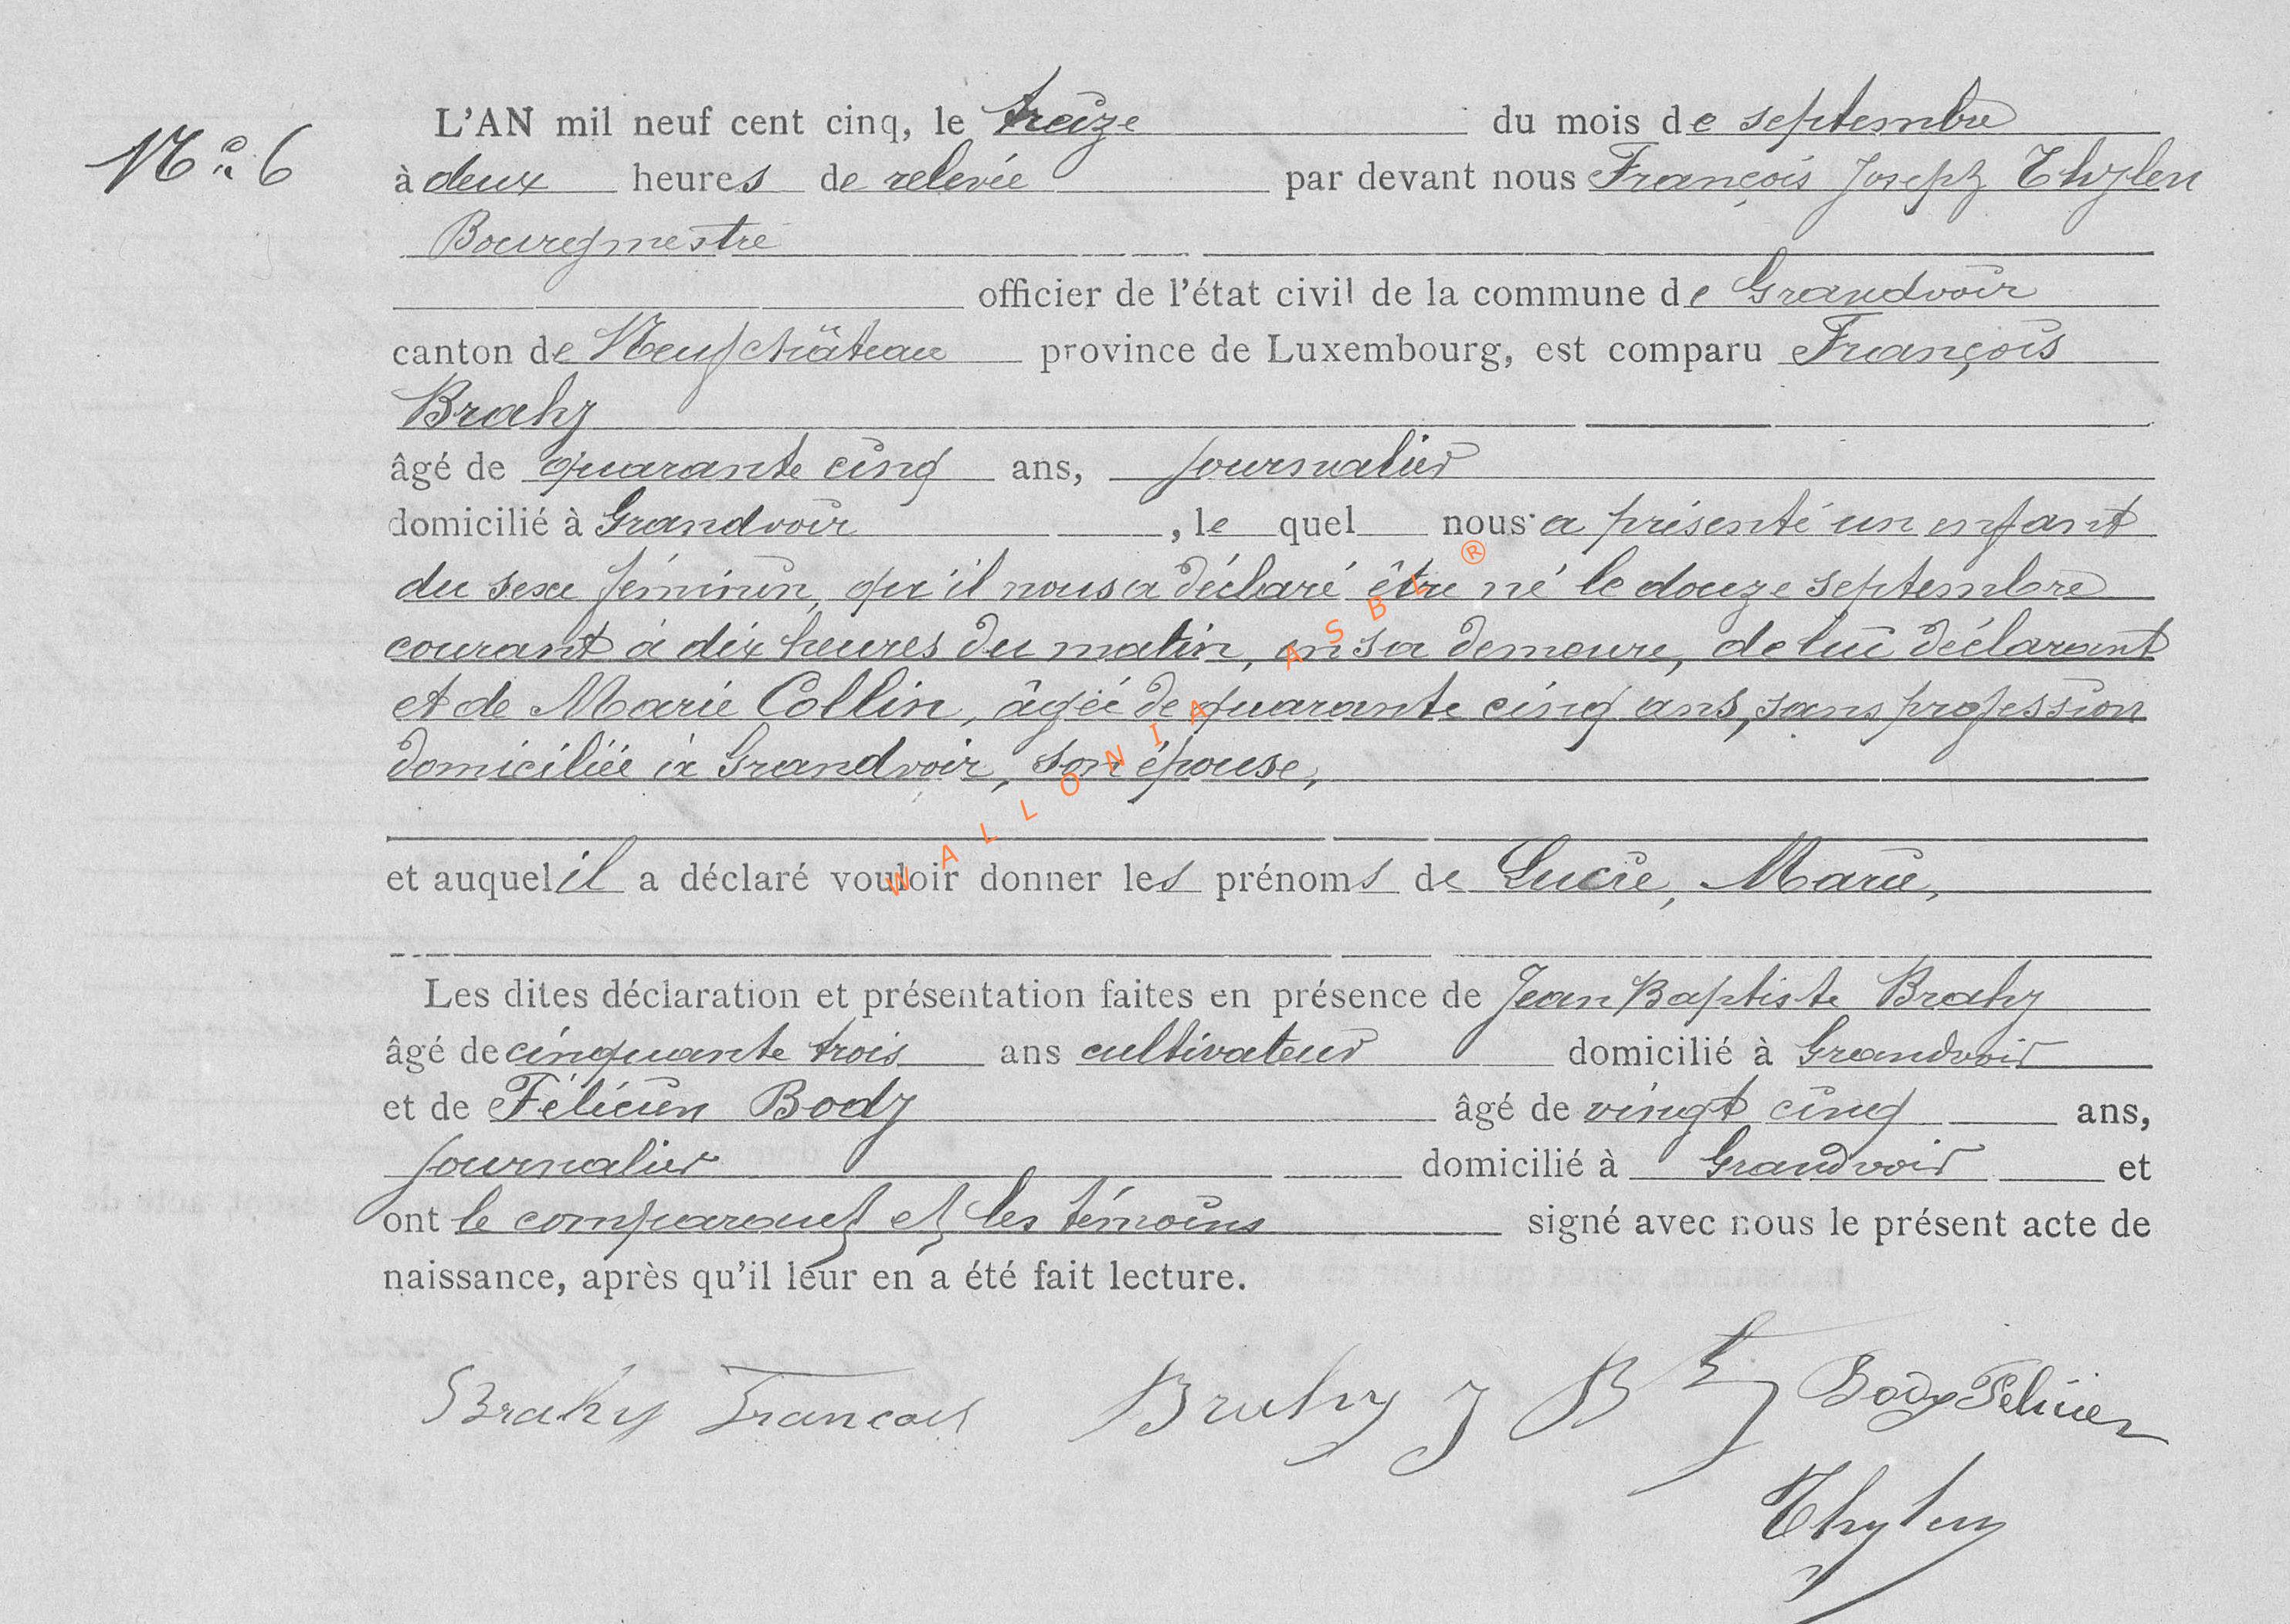 Nº 6
L'AN mil neuf cent cinq, le treize du mois de septembre
à deux heures de relevée par devant nous François Joseph Thylen
Bourgmestre
officier de l'état civil de la commune de Grandvoir
canton de Neufchâteau province de Luxembourg, est comparu François
Brahy
âgé de quarante cinq ans, journalier
domicilié à Grandvoir, le quel nous a présenté un enfant
du sexe féminin, qu'il nous a déclaré être né le douze septembre
courant à dix heures du matin, en sa demeure, de lui déclarant
et de Marie Collin, âgée de quarante cinq ans, sans profession
domiciliée à Grandvoir, son épouse,
et auquel il a déclaré vouloir donner les prénoms de Lucie, Marie,
Les dites déclaration et présentation faites en présence de Jean Baptiste Brahy
âgé de cinquante trois ans cultivateur domicilié à Grandvoir
et de Félicien Body âgé de vingt cinq ans,
journalier domicilié à Grandvoir et
ont le comparant et les témoins signé avec nous le présent acte de
naissance, après qu'il leur en a été fait lecture.
Brahy François Brahy J Bte Body Félicien
Thylen
WALLONIA ASBL ®